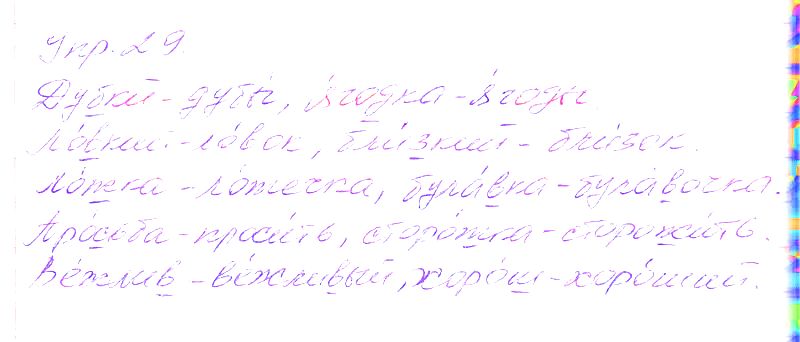 Упр. 29.
Дубки - дубы, я́годка - я́годы.
Ло́вкий - ло́вок, бли́зкий - бли́зок.
Ло́жка - ло́жечка, була́вка - була́вочка.
Про́сьба - проси́ть, сторо́жка - сторожи́ть.
Ве́жлив - ве́жливый, хоро́ш - хоро́ший.